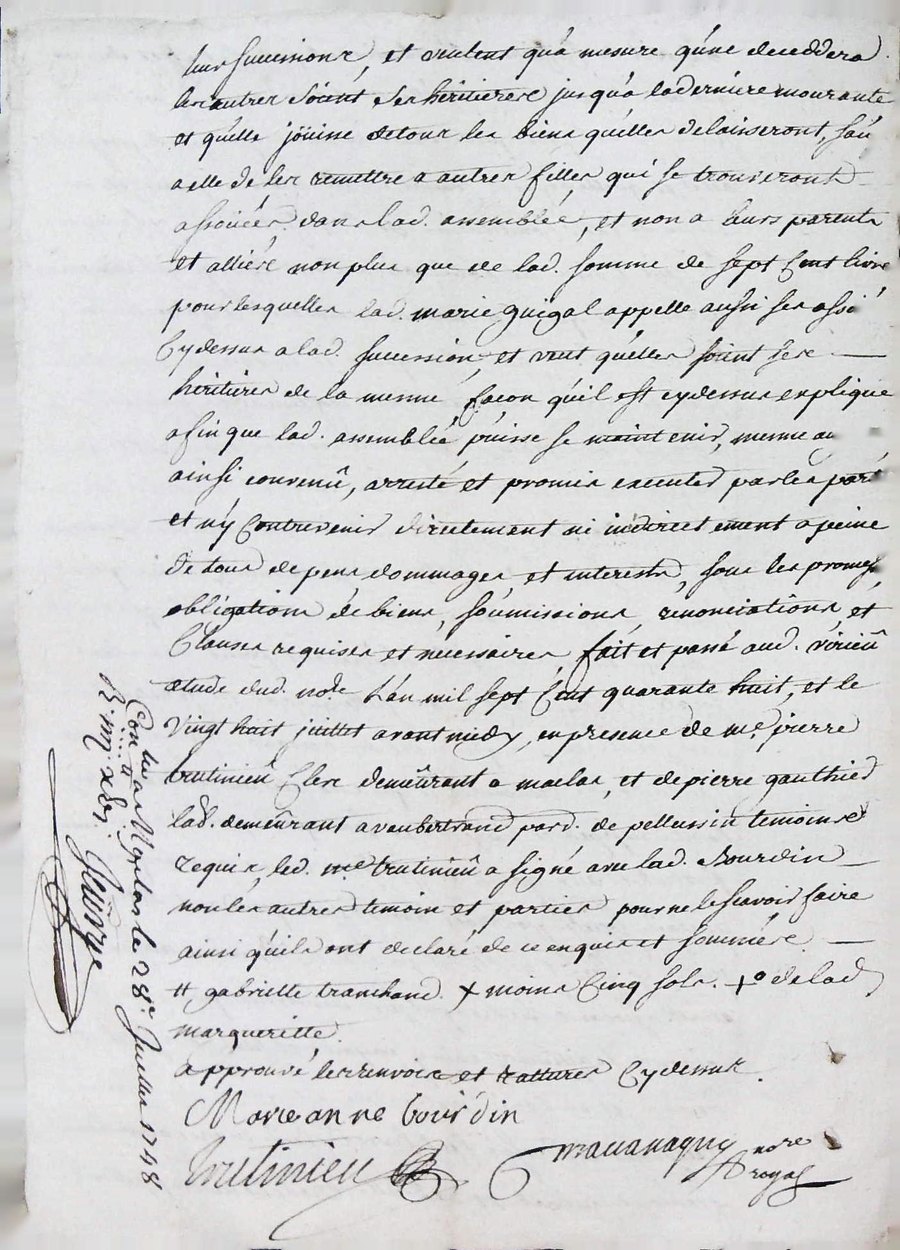 leur successions, et veulent qu'a mesure qu'une deceddera
les autres soient ses heritieres jusqu'a la derniere mourante
et qu'elle jouisse de tour les biens qu'elles delaisseront, sau
a elle de les remettre a autres filles qui se trouveront
associées dans lad. assemblée, et non a leurs parents
et alliés non plus que de lad. somme de sept cent livre
pour lesquelles lad. marie guigal appelle aussi ses assié
cydessus a lad. succession, et veut qu'elles soient ses
heritieres de la mesme façon qu'il est cydessus explique
afin que lad. assemblée puisse se maintenir, mesme
ainsi convenû, arresté et promis executer par les part
et n'y contrevenir directement ni indirectement a peine
de tous depens dommages et interests, sous les promes
obligations de biens, soumissions, renonciations, et
clauses requises et necessaires, fait et passé aud. virieû
etude dud. not.e l'an mil sept cent quarante huit, et le
vingt huit juillet avant midy, en presence de m.e pierre
trutinieû clerc demeûrant a maclas, et de pierre gauthier
lab. demeûrant a vaubertrand par.d de pellussin temoins
requis, led. m.e trutinieû a signé avec lad. bourdin
non les autres temoin et parties pour ne le scavoir faire
ainsi qu'ils ont declaré de ce enquis et sommés.
# gabrielle tranchand. + moins cinq sols. +o de lad
margueritte.
approuvé les renvois et rattures cydessus.
Marie anne bourdin
trutinieu
mavanagny nore
royal
Con.lé a Pelussin le 28.e Juillet 1748